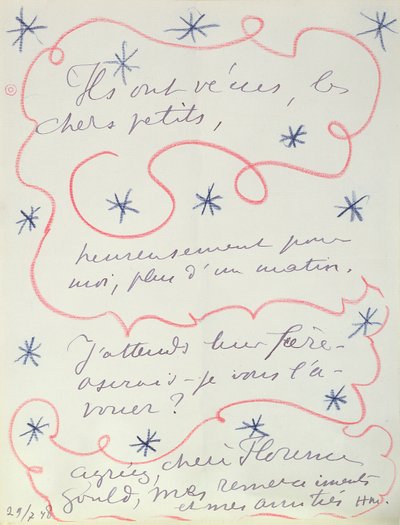 Ils ont vécus, les
chers petits,
heureusement pour
moi, plus d'un matin.
J'attends leur frère -
oserais-je vous l'a-
vouer?
agréez, chère Florence
Gould, mes remerciements
et mes amitiés HM.
29/7 48